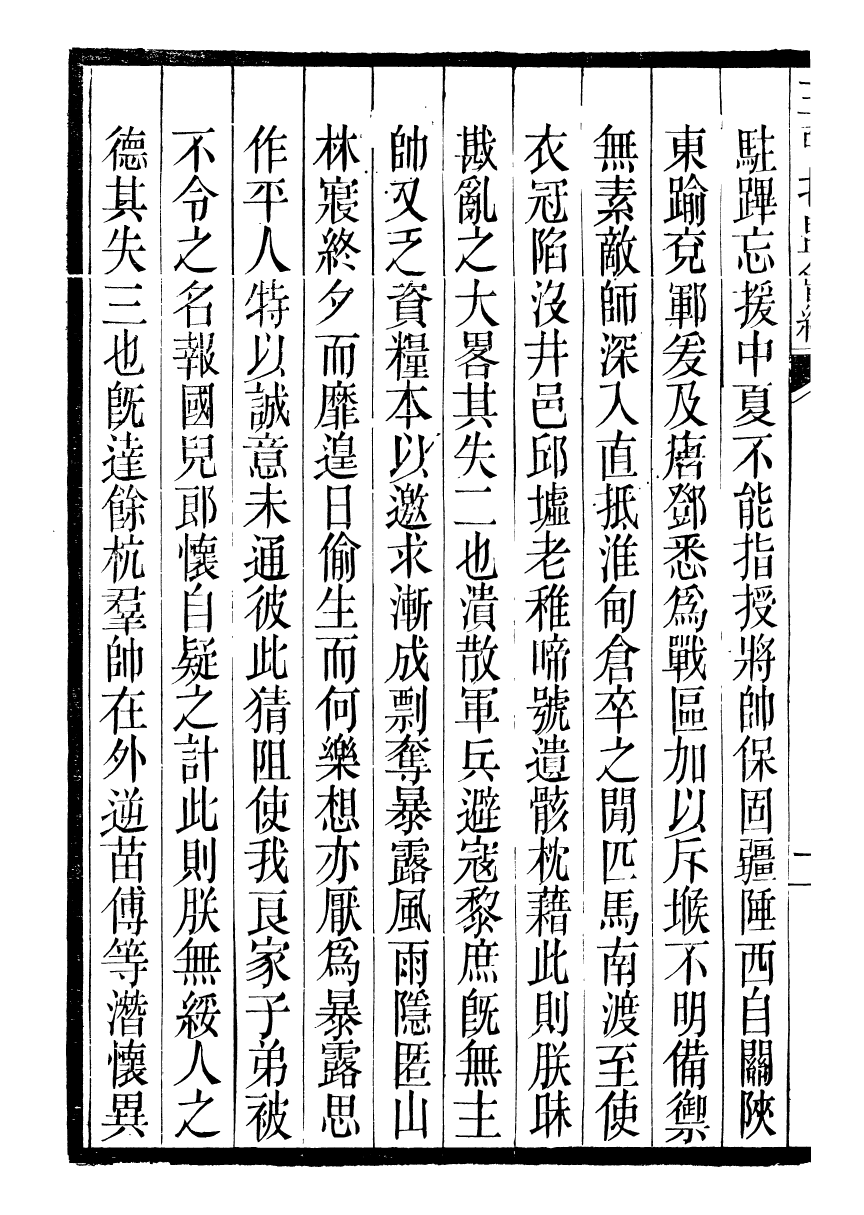 駐蹕忘援中夏不能指授將帥保固疆陲西自關陝
東踰兗鄆爰及唐鄧悉爲戰區加以斥堠不明備禦
無素敵師深入直抵淮甸倉卒之閒匹馬南渡至使
衣冠陷沒井邑邱墟老稚啼號遺骸枕藉此則朕昧
戡亂之大畧其失二也潰散軍兵避寇黎庶旣無主
帥又乏資糧本以邀求漸成剽奪暴露風雨隱匿山
林寢終夕而靡遑日偷生而何樂想亦厭爲暴露思
作平人特以誠意未通彼此猜阻使我良家子弟被
不令之名報國兒郎懷自疑之計此則朕無綏人之
德其失三也旣達餘杭羣帥在外逆苗傅等潛懷異